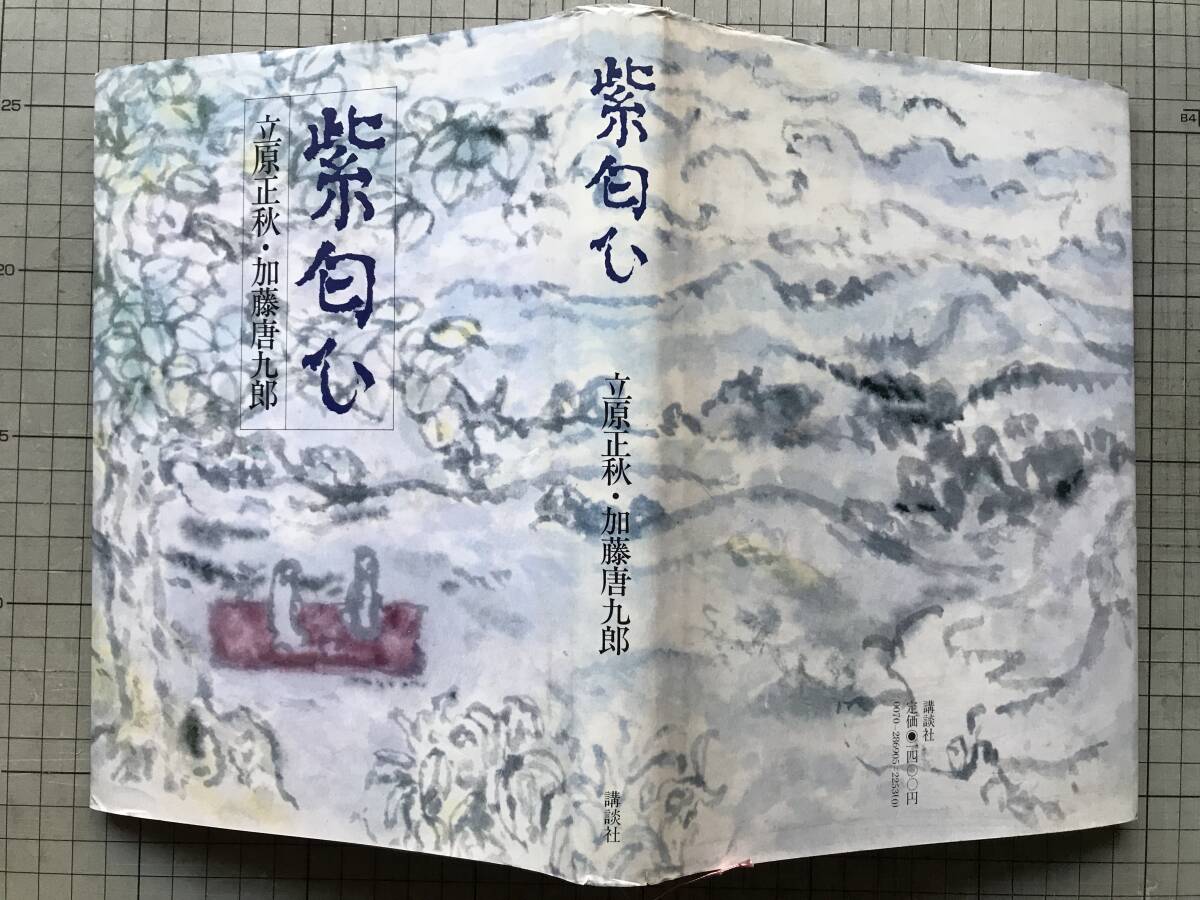 紫匂ひ
立原正秋・加藤唐九郎
紫匂ひ
立原正秋・加藤唐九郎
講談社
講談社
定価●一四〇〇円
0070-286905-2253(0)
25
20
5
0
B4